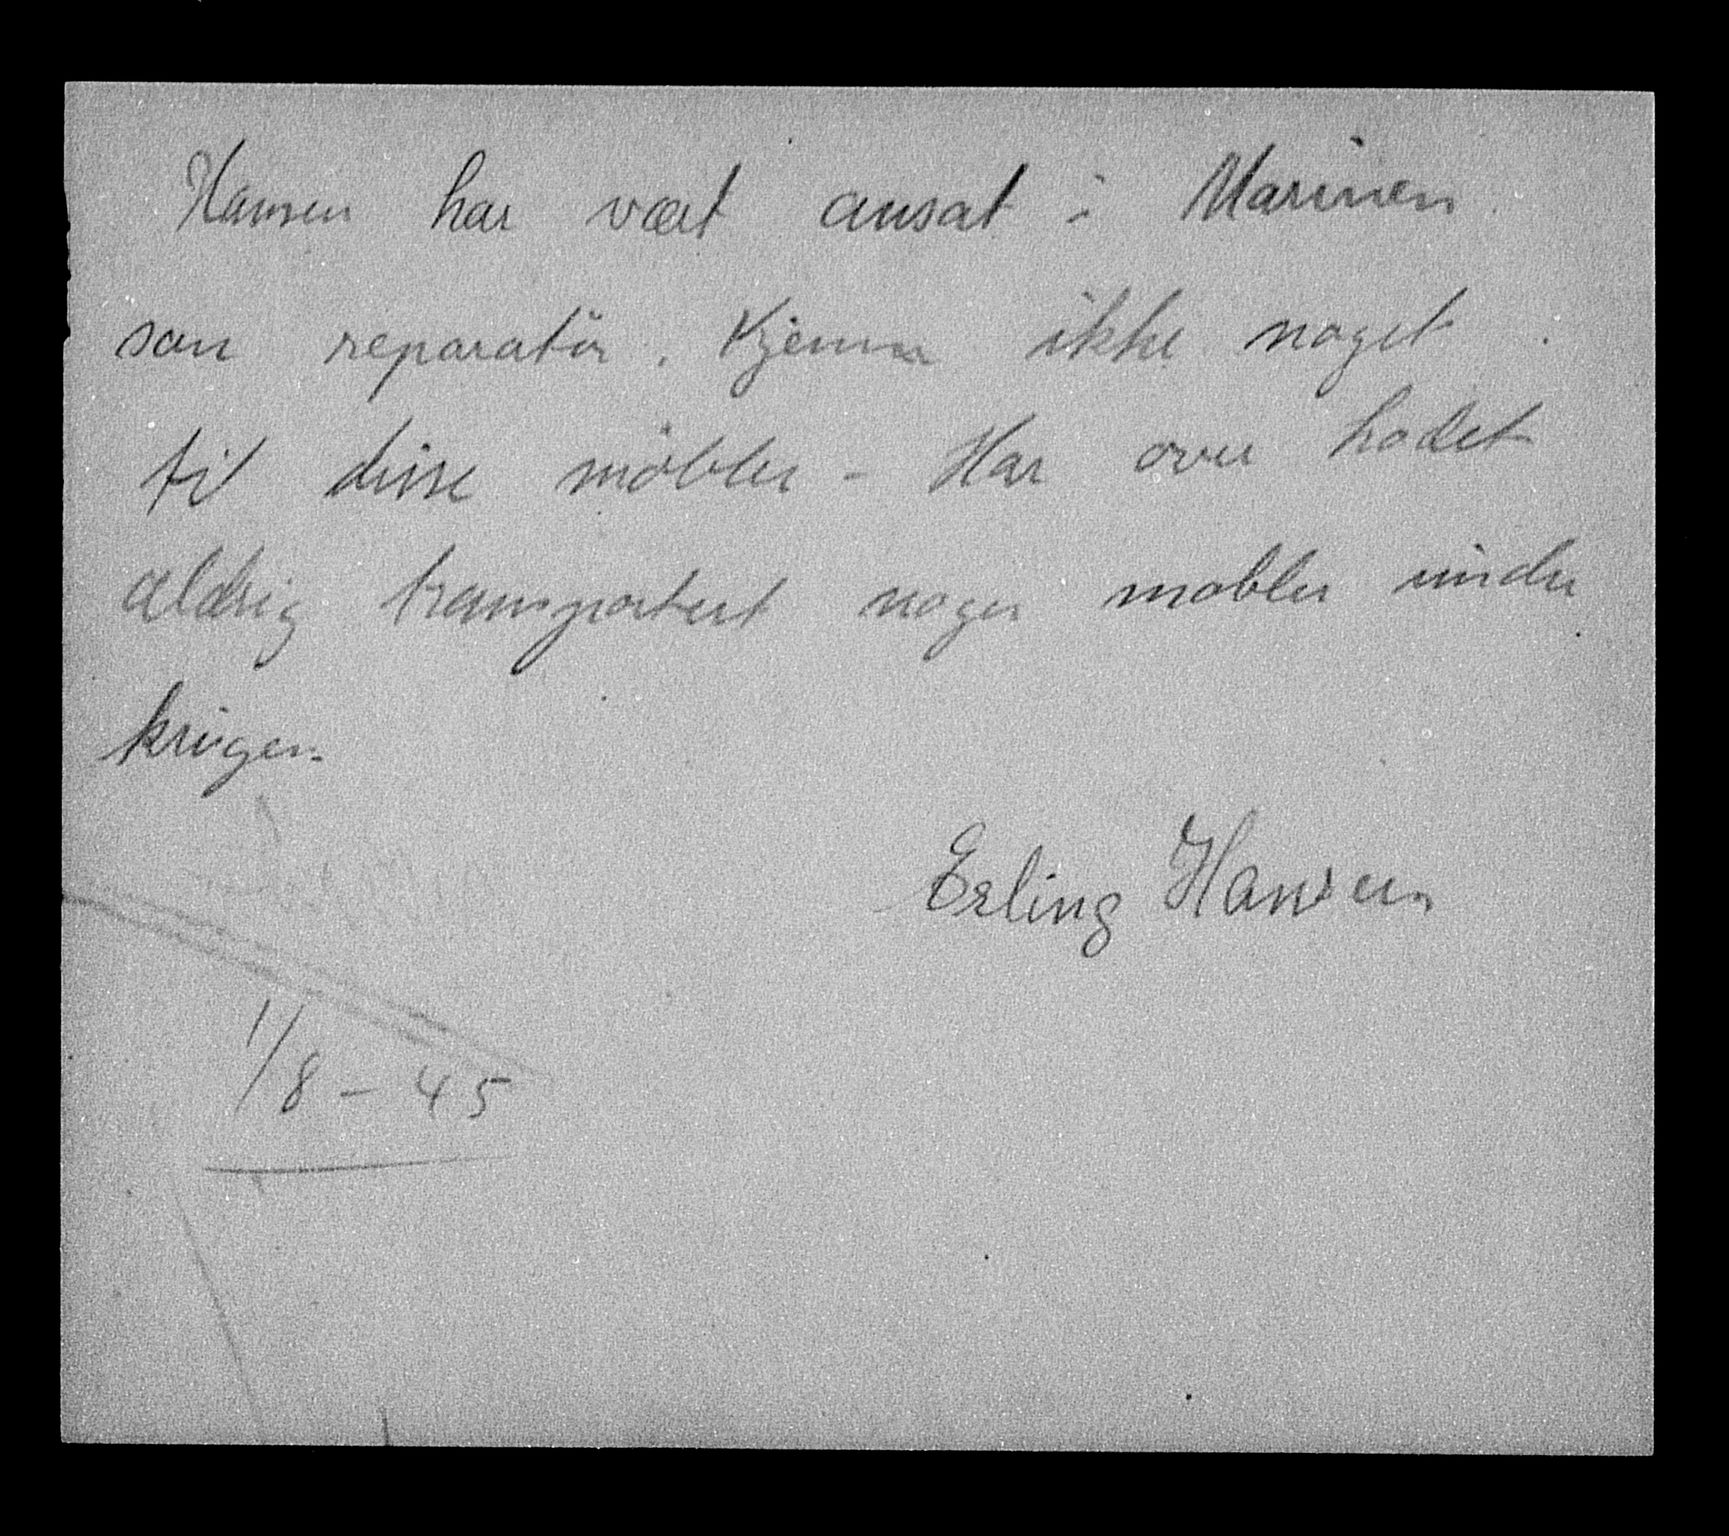 Hansen har vært ansat i Marinen
som reparatör. Kjenner ikke noget
til disse möbler - Har over hodet
aldrig transportert noger mobler under
krigen.
Erling Hansen
1/8 - 45